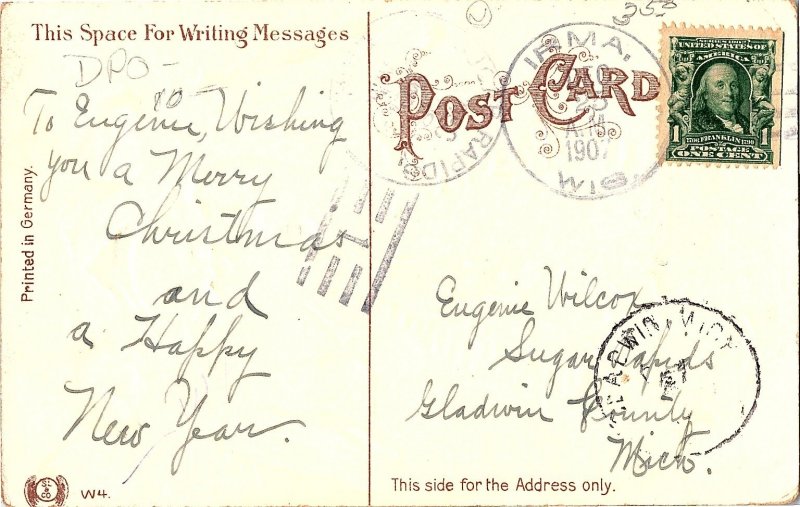 This Space For Writing Messages
DPO -
To Eugenie, Wishing
you a Merry
Christmas
and
a Happy
New Year.
Printed in Germany.
W4.
POST CARD
RAPIDS
IRMA.
23
A.M.
1907
WIS
35
UNITED STATES OF
AMERICA
1706 FRANKLIN 1790
1 1
POSTAGE
ONE CENT
Eugenie Wilcox
Sugar Rapids
Gladwin County
Mich.
MICH
This side for the Address only.